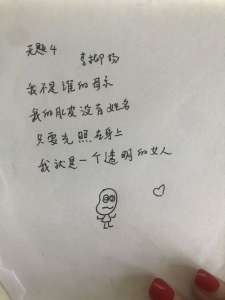 无题4
李柳杨
我不是谁的母亲
我的肚皮没有姓名
只要光照在身上
我就是一个透明的女人